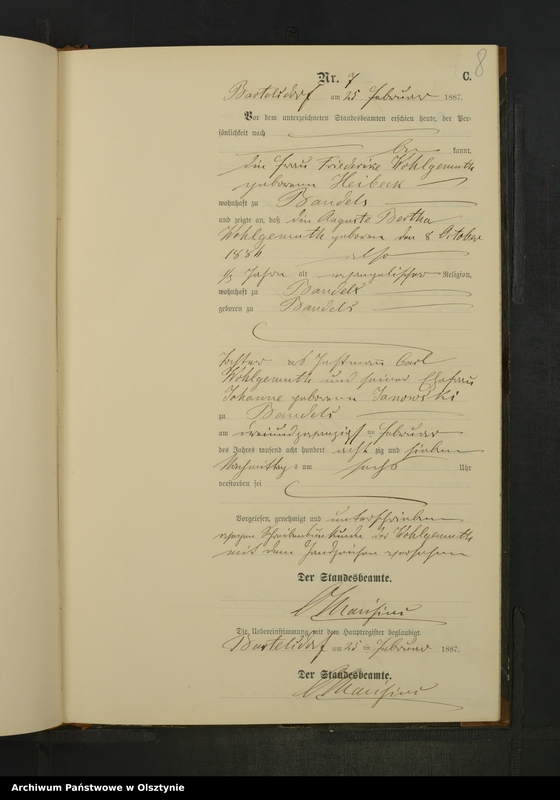 8
Nr. 7 C.
Bartelsdorf am 25 Februar 1887.
Vor dem unterzeichneten Standesbeamten erschien heute, der Per-
sönlichkeit nach
be kannt,
die Frau Friederike Wohlgemuth
geborene Heibeck
wohnhaft zu Bandels
und zeigte an, daß die Auguste Bertha
Wohlgemuth geboren den 8 October
1884 also
Jahre alt evangelischer Religion,
wohnhaft zu Bandels
geboren zu Bandels
Tochter des Carl
Wohlgemuth und seiner Ehefrau
Johanne geborene Janowski
zu Bandels
am dreiundzwanzigst en Februar
des Jahres tausend acht hundert acht zig und sieben
Nachmittag s um sechs Uhr
verstorben sei
Vorgelesen, genehmigt und unterschrieben
wegen Schreibensunkunde der Wohlgemuth
mit dem Handzeichen versehen
Der Standesbeamte.
Die Uebereinstimmung mit dem Hauptregister beglaubigt.
Bartelsdorf am 25 ten Februar 1887.
Der Standesbeamte.
Archiwum Państwowe w Olsztynie